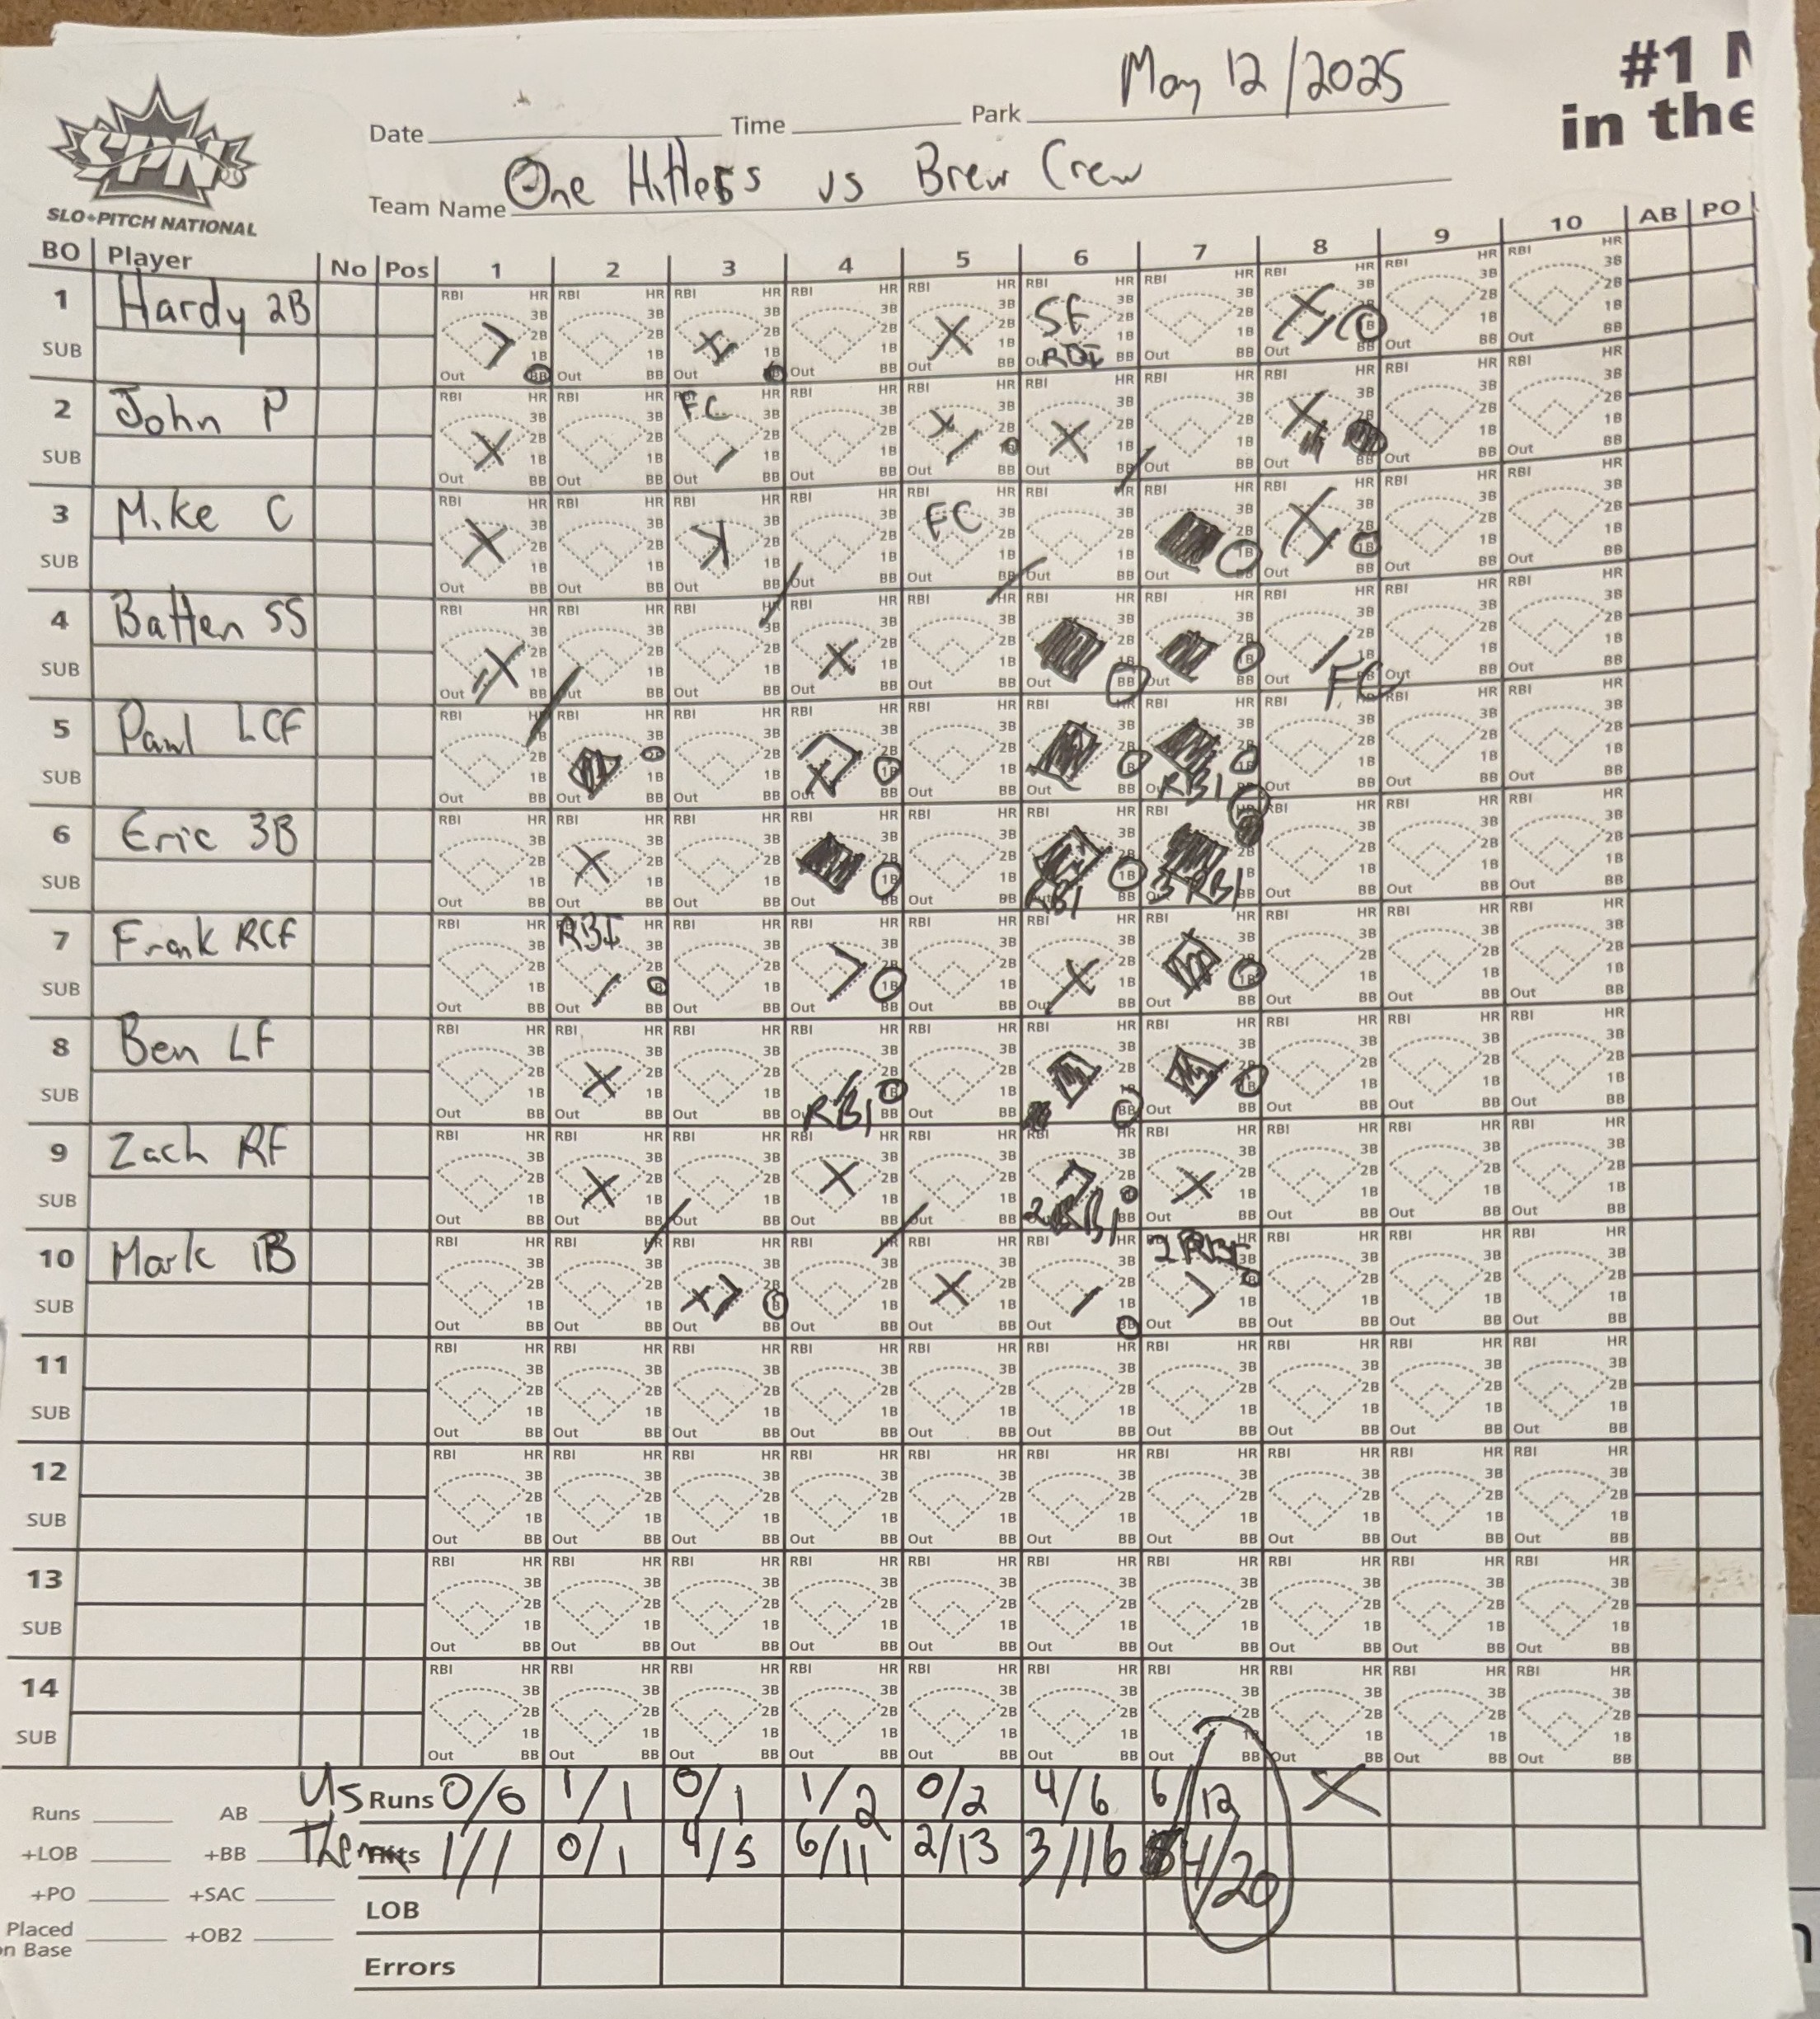 May 12/2025
#1
in the
SPN
SLO-PITCH NATIONAL
Date Time Park
Team Name One Hitless vs Brew Crew
BO Player No Pos 1 2 3 4 5 6 7 8 9 10 AB PO
1 Hardy 2B
SUB
SF
RBI
2 John P
SUB
FC
3 Mike C
SUB
FC
4 Batten SS
SUB
FC
5 Paul LCF
SUB
RBI
6 Eric 3B
SUB
RBI 3 RBI
7 Frank RCF
SUB
RBI
8 Ben LF
SUB
RBI
9 Zach RF
SUB
2 RBI
10 Mark 1B
SUB
2 RBI
11
SUB
12
SUB
13
SUB
14
SUB
RBI HR 3B 2B 1B BB Out
Us Runs 0/0 1/1 0/1 1/2 0/2 4/6 6/12 X
Them Hits 1/1 0/1 4/5 6/11 2/13 3/16 4/20
LOB
Errors
Runs AB
+LOB +BB
+PO +SAC
Placed
on Base +OB2